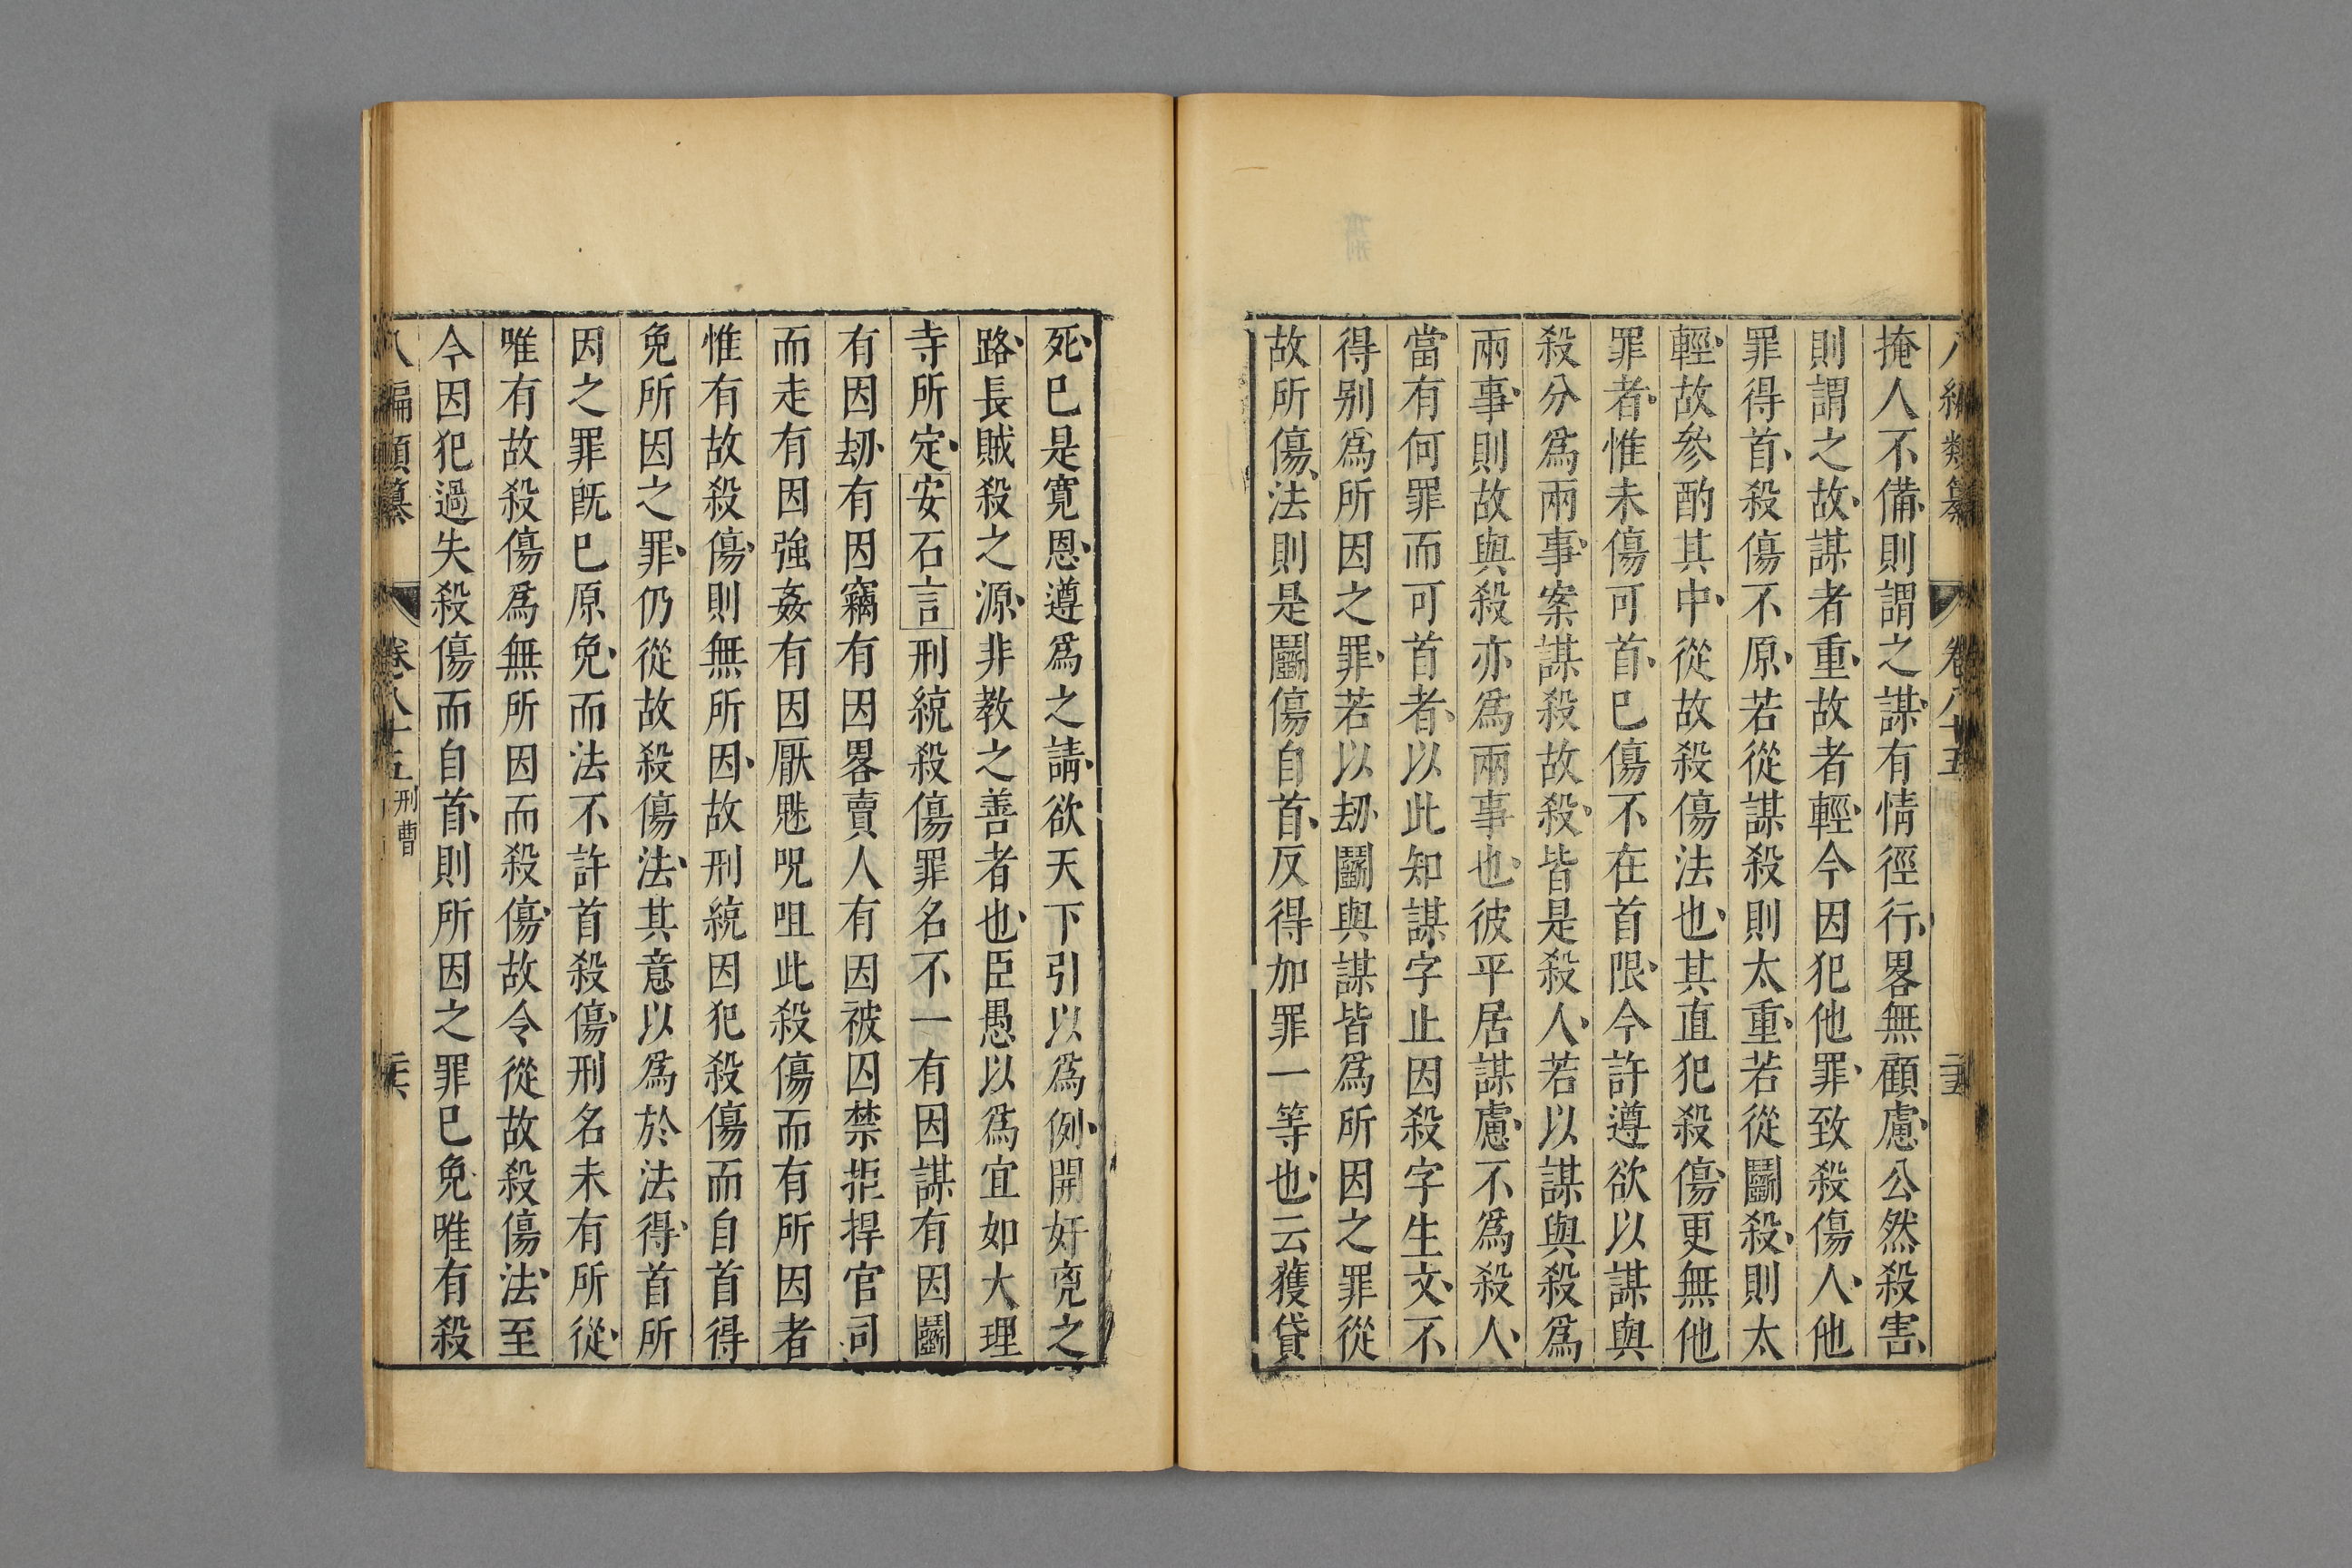 八編類纂 卷八十五 二十五
掩人不備則謂之謀有情徑行畧無顧慮公然殺害
則謂之故謀者重故者輕今因犯他罪致殺傷人他
罪得首殺傷不原若從謀殺則太重若從鬭殺則太
輕故參酌其中從故殺傷法也其直犯殺傷更無他
罪者惟未傷可首巳傷不在首限今許遵欲以謀與
殺分爲兩事案謀殺故殺皆是殺人若以謀與殺爲
兩事則故與殺亦爲兩事也彼平居謀慮不爲殺人
當有何罪而可首者以此知謀字止因殺字生文不
得别爲所因之罪若以刼鬭與謀皆爲所因之罪從
故所傷法則是鬭傷自首反得加罪一等也云獲貸
死巳是寛恩遵爲之請欲天下引以爲例開奸兇之
路長賊殺之源非教之善者也臣愚以爲宜如大理
寺所定安石言刑統殺傷罪名不一有因謀有因鬭
有因刼有因竊有因畧賣人有因被囚禁拒捍官司
而走有因強姦有因厭魅呪咀此殺傷而有所因者
惟有故殺傷則無所因故刑統因犯殺傷而自首得
免所因之罪仍從故殺傷法其意以爲於法得首所
因之罪旣巳原免而法不許首殺傷刑名未有所從
唯有故殺傷爲無所因而殺傷故令從故殺傷法至
今因犯過失殺傷而自首則所因之罪巳免唯有殺
八編類纂 卷八十五 刑曹 二十六